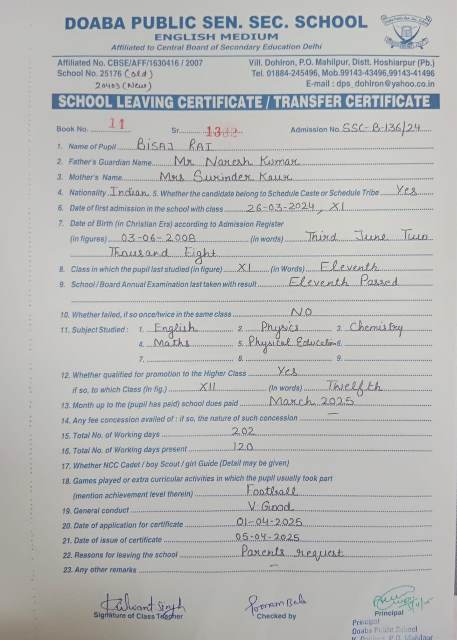 DOABA PUBLIC SEN. SEC. SCHOOL
ENGLISH MEDIUM
Affiliated to Central Board of Secondary Education Delhi
Affiliated No. CBSE/AFF/1630416 / 2007 Vill. Dohlron, P.O. Mahilpur, Distt. Hoshiarpur (Pb.)
School No. 25176 (old) Tel. 01884-245496, Mob.99143-43496,99143-41496
20403 (New) E-mail : dps_dohlron@yahoo.co.in
SCHOOL LEAVING CERTIFICATE / TRANSFER CERTIFICATE
Book No. 11 Sr. Admission No. SSC-B-136/24
1. Name of Pupil BISAJ RAI
2. Father's Guardian Name Mr. Naresh Kumar
3. Mother's Name Mrs Surinder Kaur
4. Nationality Indian 5. Whether the candidate belong to Schedule Caste or Schedule Tribe Yes
6. Date of first admission in the school with class 26-03-2024, XI
7. Date of Birth (in Christian Era) according to Admission Register
(in figures) 03-06-2008 (in words) Third June Two
Thousand Eight
8. Class in which the pupil last studied (in figure) XI (in Words) Eleventh
9. School / Board Annual Examination last taken with result Eleventh Passed
10. Whether failed, if so once/twice in the same class NO
11. Subject Studied : 1. English 2. Physics 3. Chemistry
4. Maths 5. Physical Education 6.
7. 8. 9.
12. Whether qualified for promotion to the Higher Class Yes
if so, to which Class (in fig.) XII (in words) Twelfth
13. Month up to the (pupil has paid) school dues paid March 2025
14. Any fee concession availed of : if so, the nature of such concession —
15. Total No. of Working days 202
16. Total No. of Working days present 120
17. Whether NCC Cadet / boy Scout / girl Guide (Detail may be given)
18. Games played or extra curricular activities in which the pupil usually took part
(mention achievement level therein) Football
19. General conduct V Good
20. Date of application for certificate 01-04-2025
21. Date of issue of certificate 05-04-2025
22. Reasons for leaving the school Parents request
23. Any other remarks —
Kulwant Singh Poonam Bala
Signature of Class Teacher Checked by Principal
Principal
Doaba Public School